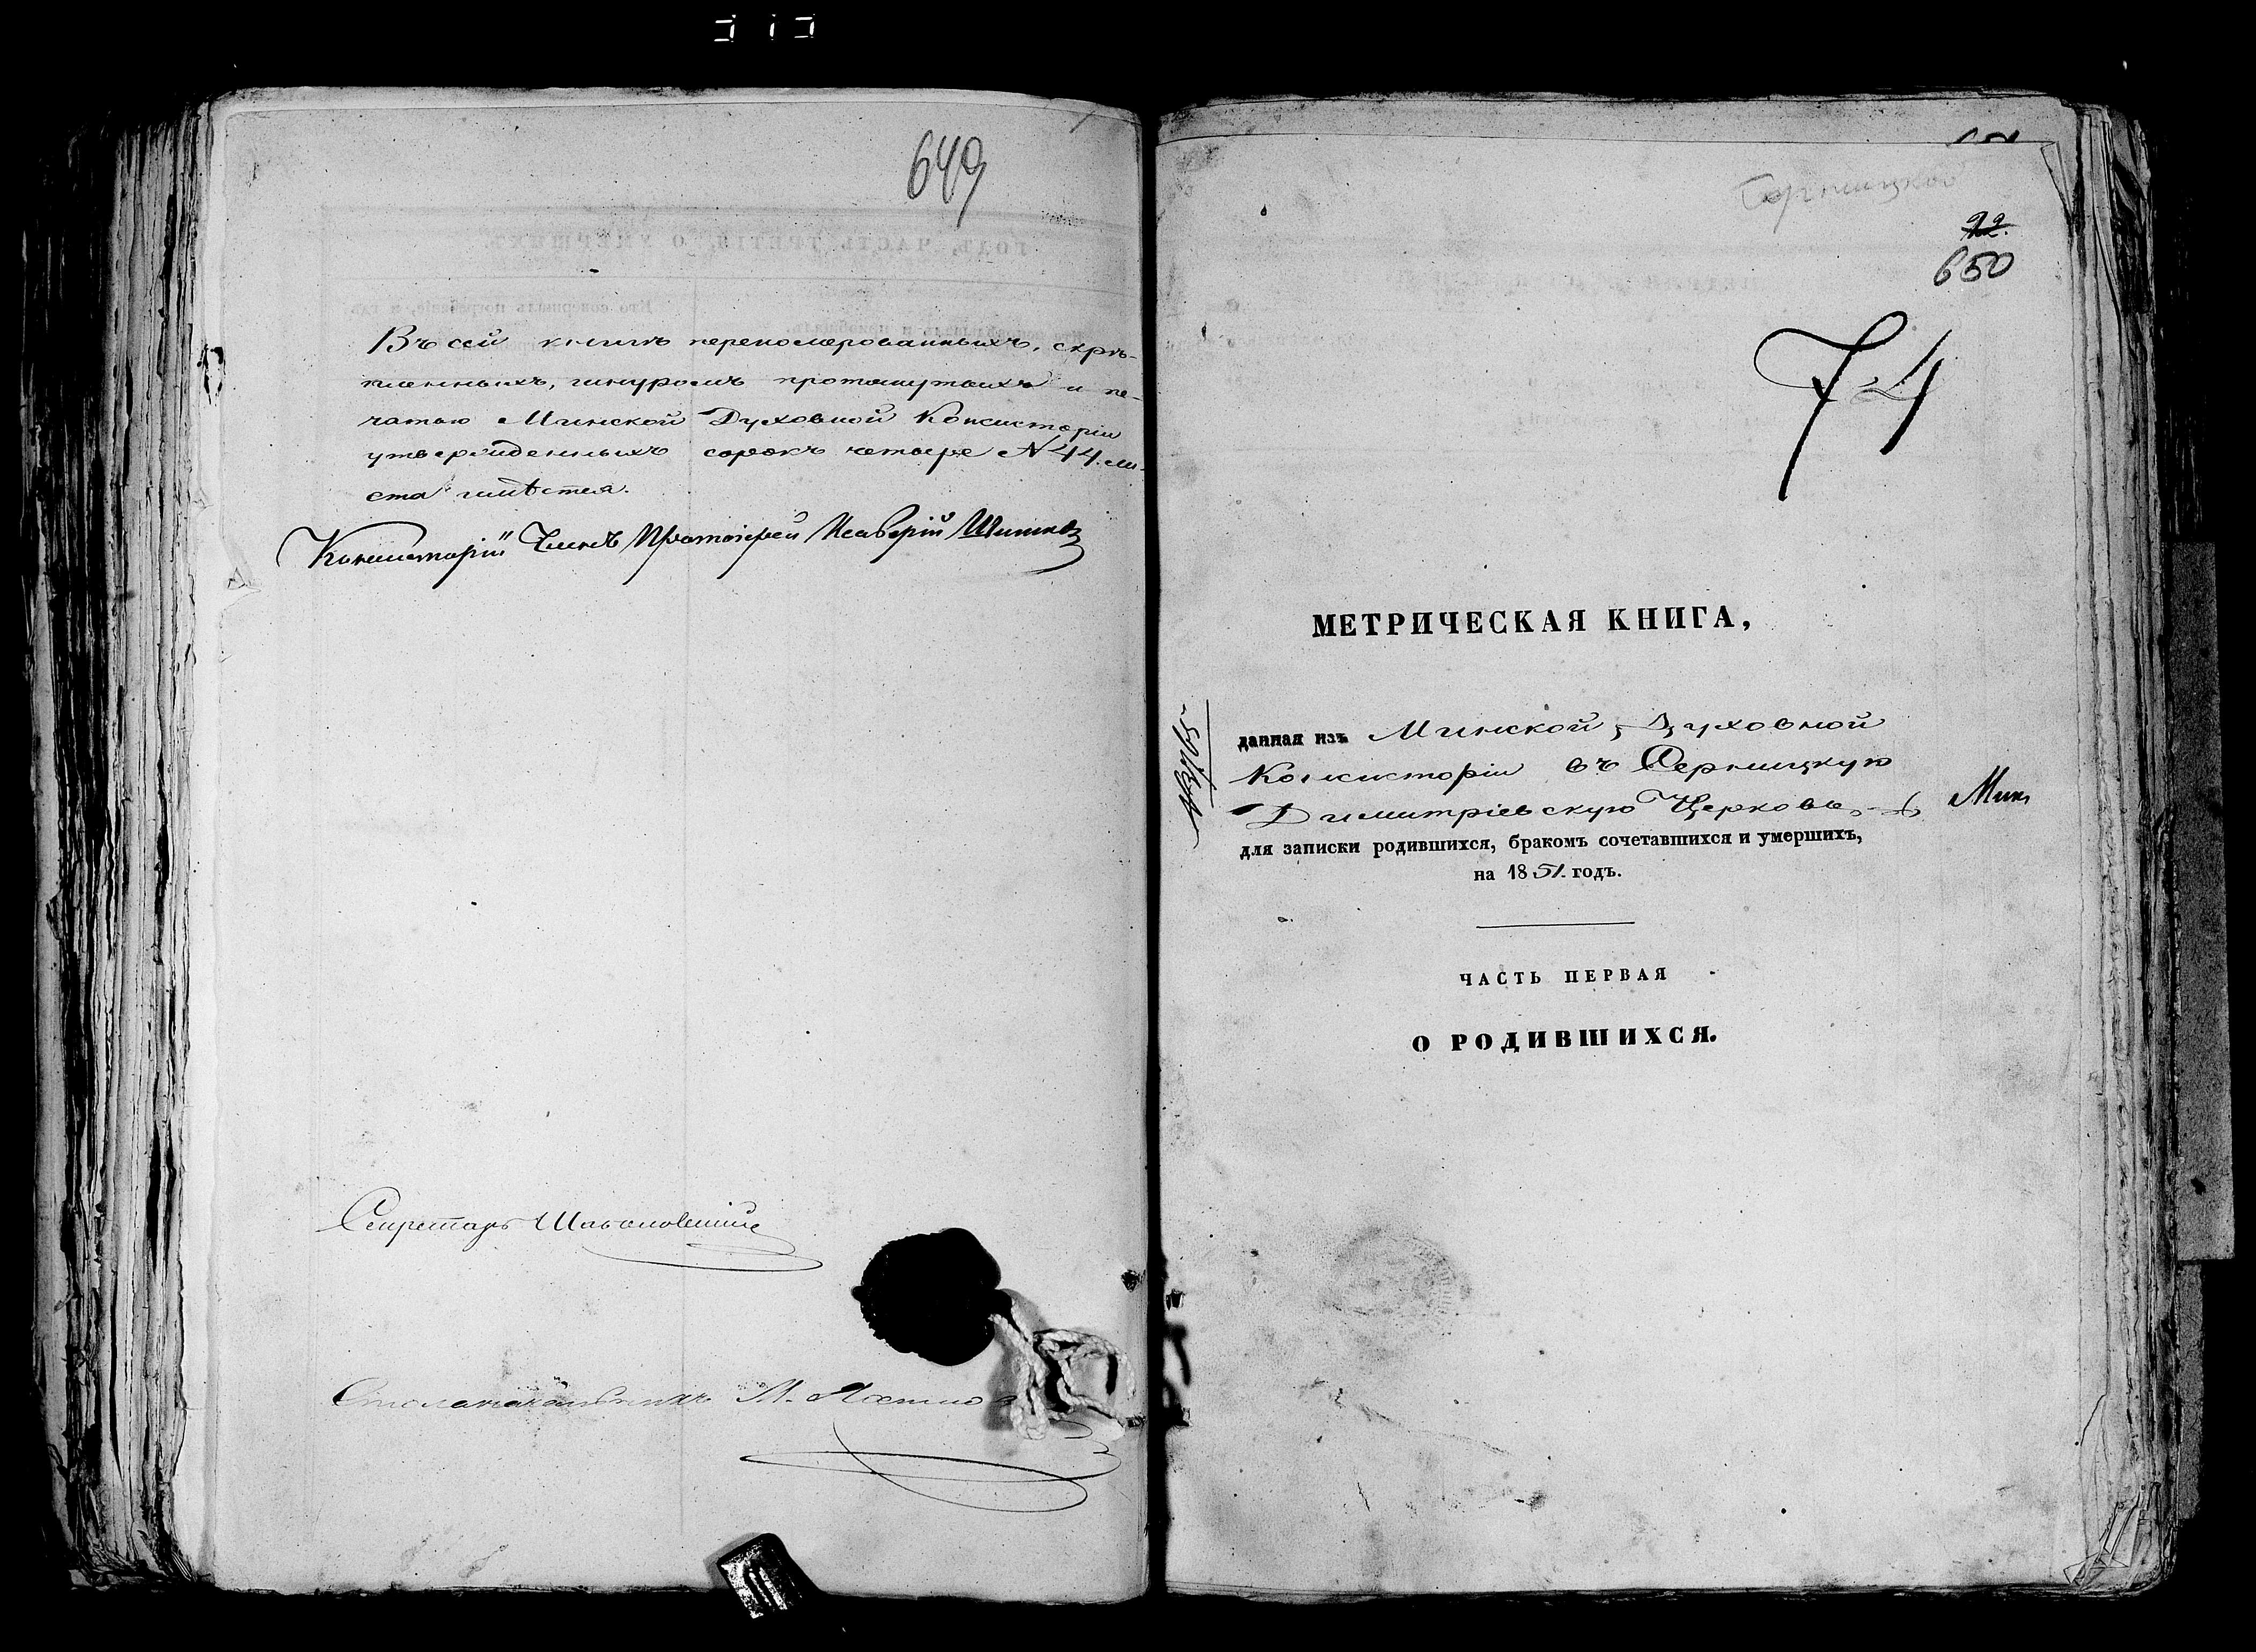 649
Въ сей книгѣ перенумерованныхъ, скрѣ-
пленныхъ, шнуромъ протянутыхъ и пе-
чатью Минской Духовной Консисторіи
утвержденныхъ сорокъ четыре N 44. ли-
ста имѣется.
Консисторіи Членъ Протоіерей
Секретарь
Столоначальникъ М.
22.
650
74
МЕТРИЧЕСКАЯ КНИГА,
данная изъ Минской Духовной
Консисторіи въ Серницкую
Димитріевскую Церковь
для записки родившихся, бракомъ сочетавшихся и умершихъ,
на 1851. годъ.
ЧАСТЬ ПЕРВАЯ
О РОДИВШИХСЯ.